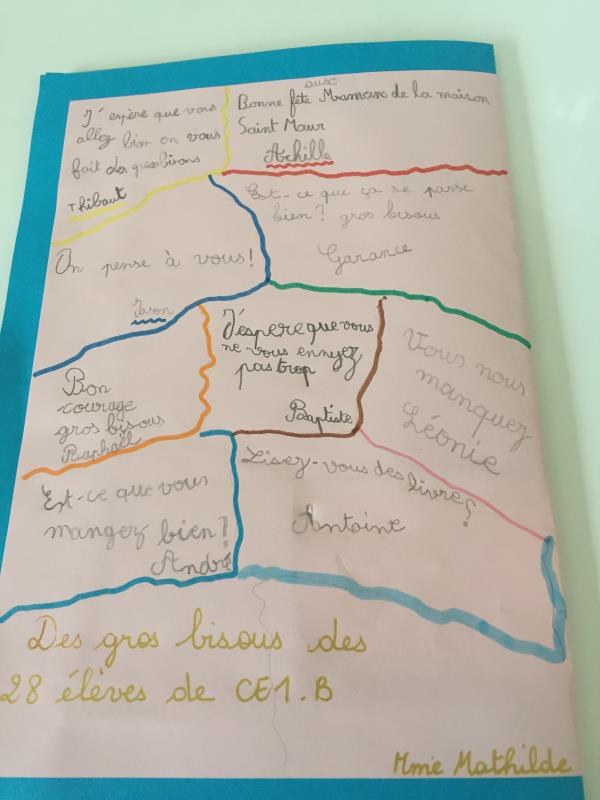 J'espère que vous
allez bien on vous
fait des gros bisous
Thibaut
aussi
Bonne fête Maman de la maison
Saint Maur
Achille
Est-ce que ça se passe
bien? gros bisous
Garance
On pense à vous!
Jason
Bon
courage
gros bisous
Raphaël
J'éspere que vous
ne vous ennyez
pas trop
Baptiste
Vous nous
manquez
Léonie
Est-ce que vous
mangez bien?
André
Lisez-vous des livres?
Antoine
Des gros bisous des
28 élèves de CE1.B
Mme Mathilde